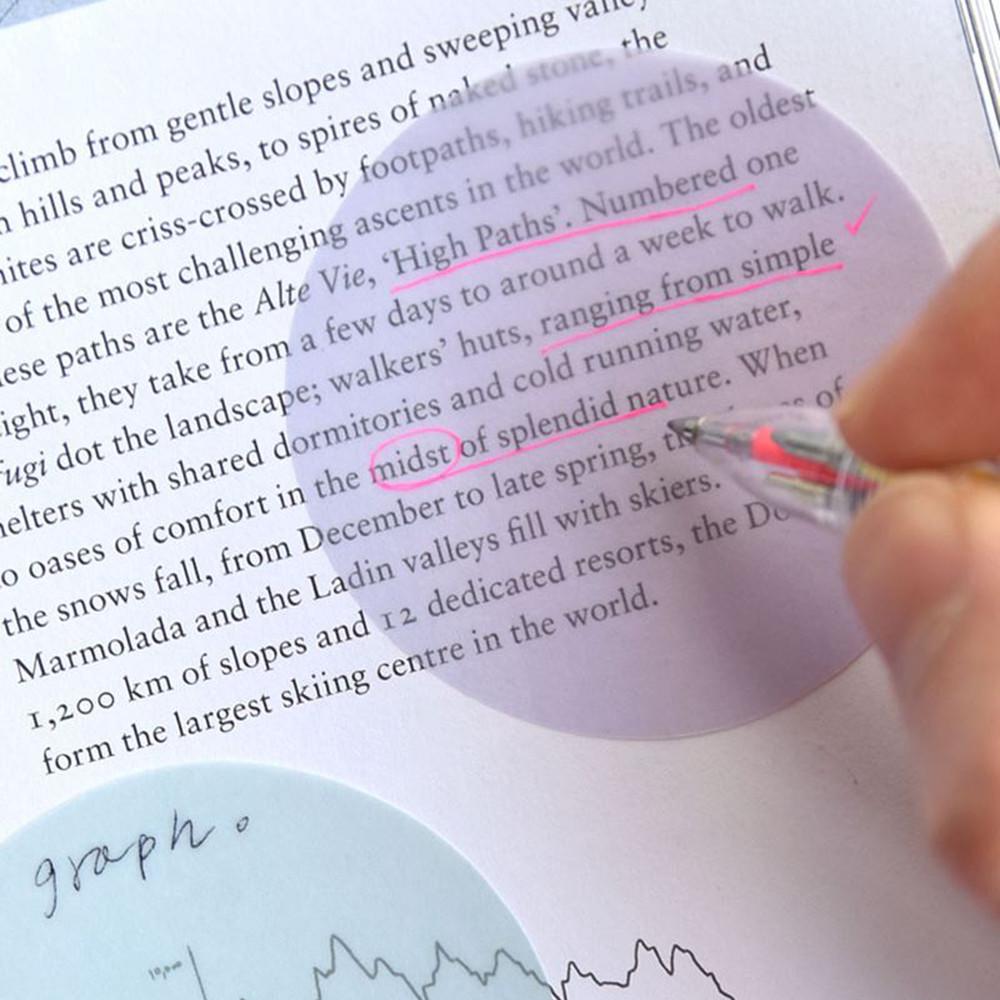 climb from gentle slopes and sweeping valley
hills and peaks, to spires of naked stone, the
ites are criss-crossed by footpaths, hiking trails, and
of the most challenging ascents in the world. The oldest
ese paths are the Alte Vie, ‘High Paths’. Numbered one
ight, they take from a few days to around a week to walk.
fugi dot the landscape; walkers’ huts, ranging from simple
elters with shared dormitories and cold running water,
o oases of comfort in the midst of splendid nature. When
the snows fall, from December to late spring, of
Marmolada and the Ladin valleys fill with skiers.
1,200 km of slopes and 12 dedicated resorts, the Do
form the largest skiing centre in the world.
graph.